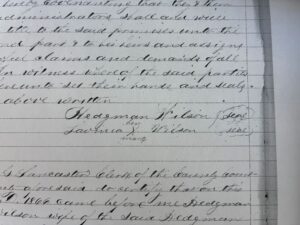 hereby covenanting that they their
administrators shall and will
title to the said premises unto the
ond part & to his heirs and assigns
claims and demands of all
In witness whereof the said parties
hereunto set their hands and seals
above written
Hedgman Wilson (seal)
her
Lavinia X Wilson (seal)
mark
Lancaster Clerk of the County court
aforesaid do certify that on this
1866 came before me Hedgman
Wilson wife of the said Hedgman